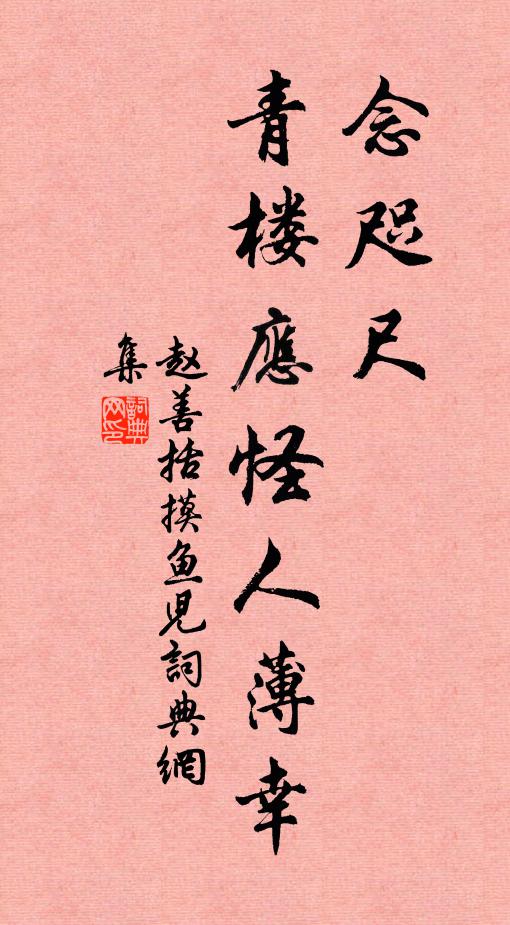 念咫尺
青楼應怪人薄幸
赵善括摸鱼児詞典網
集
詞典
网印